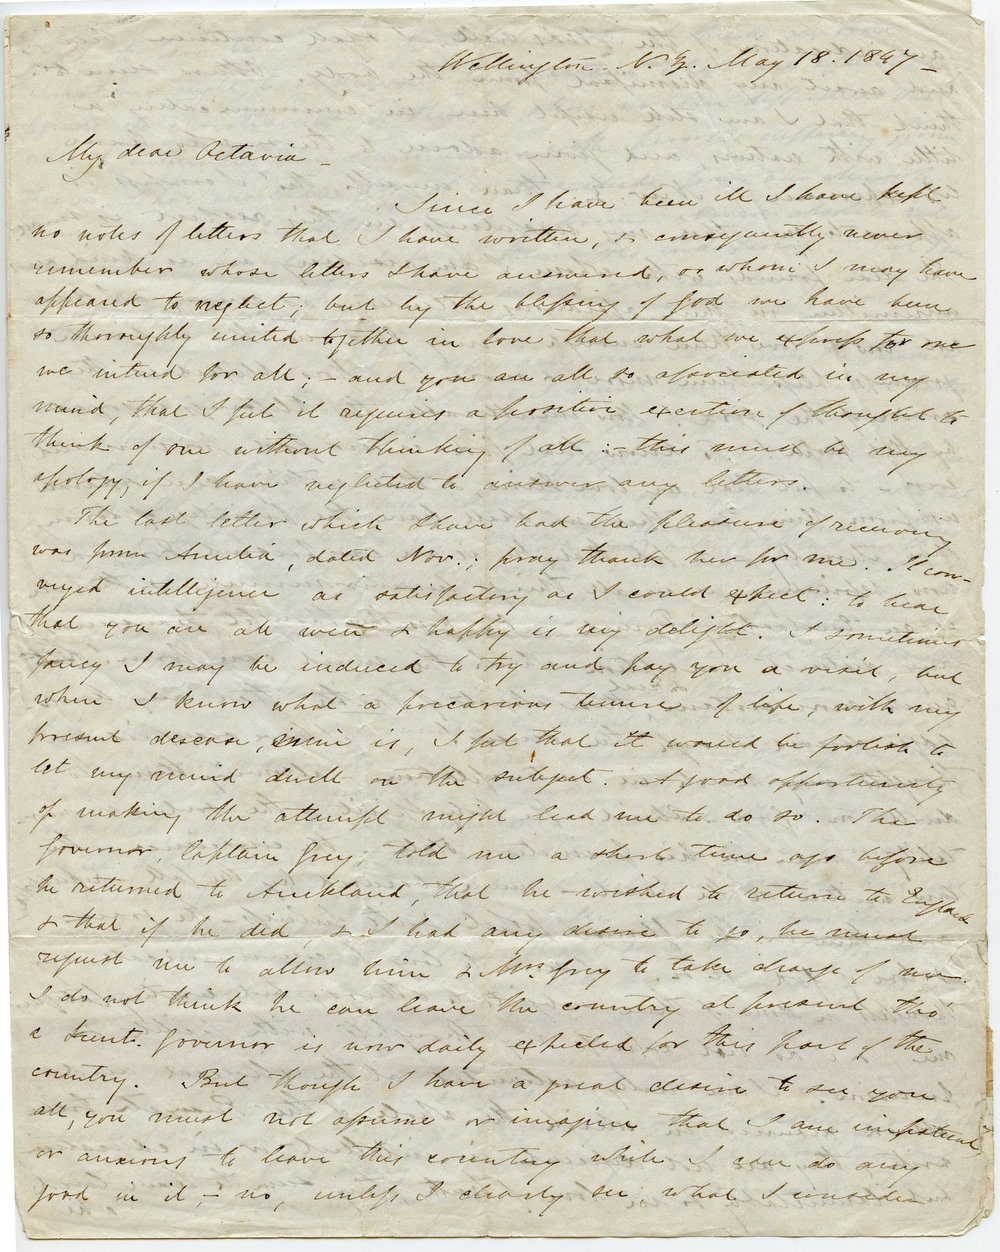 Wellington. N.Z. May 18. 1847 –
My dear Octavia –
Since I have been ill I have kept
no notes of letters that I have written, & consequently never
remember whose letters I have answered, or whom I may have
appeared to neglect; but by the blessing of God we have been
so thoroughly united together in love that what we express for one
we intend for all; – and you are all so associated in my
mind, that I feel it requires a positive exertion of thought to
think of one without thinking of all: – this must be my
apology, if I have neglected to answer any letters.
The last letter which I have had the pleasure of receiving
was from Amelia, dated Nov.; pray thank her for me. It con-
veyed intelligence as satisfactory as I could expect: to hear
that you are all well & happy is my delight. I sometimes
fancy I may be induced to try and pay you a visit, but
when I know what a precarious tenure of life, with my
present disease, mine is, I feel that it would be foolish to
let my mind dwell on the subject. A good opportunity
of making the attempt might lead me to do so. The
Governor, Captain Grey, told me a short time ago before
he returned to Auckland, that he wished to return to England
& that if he did, & I had any desire to go, he must
request me to allow him & Mrs Grey to take charge of me.
I do not think he can leave the country at present tho'
a Lieut. Governor is now daily expected for this part of the
country. But though I have a great desire to see you
all, you must not assume or imagine that I am impatient
or anxious to leave this country while I can do any
good in it – no, unless I clearly see what I consider